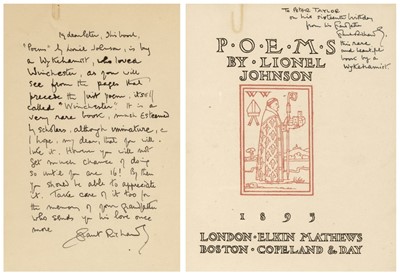 My dear Peter, This book,
"Poems" by Lionel Johnson, is by
a Wykehamist, who loved
Winchester, as you will
see from the pages that
precede the first poem, itself
called "Winchester". It is a
very rare book, much esteemed
by scholars, although immature, &
I hope, my dear, that you will
like it. However you will not
get much chance of doing
so until you are 16! By then
you should be able to appreciate
it. Take care of it too for
the memory of your Grandfather
who sends you his love once
more
Grant Richards
To PETER TAYLOR
on his sixteenth birthday
from his Grandfather
Grant Richards,
this rare
and beautiful
book by a
Wykehamist.
P·O·E·M·S
BY·LIONEL
JOHNSON
W W
1895
LONDON·ELKIN MATHEWS
BOSTON·COPELAND & DAY